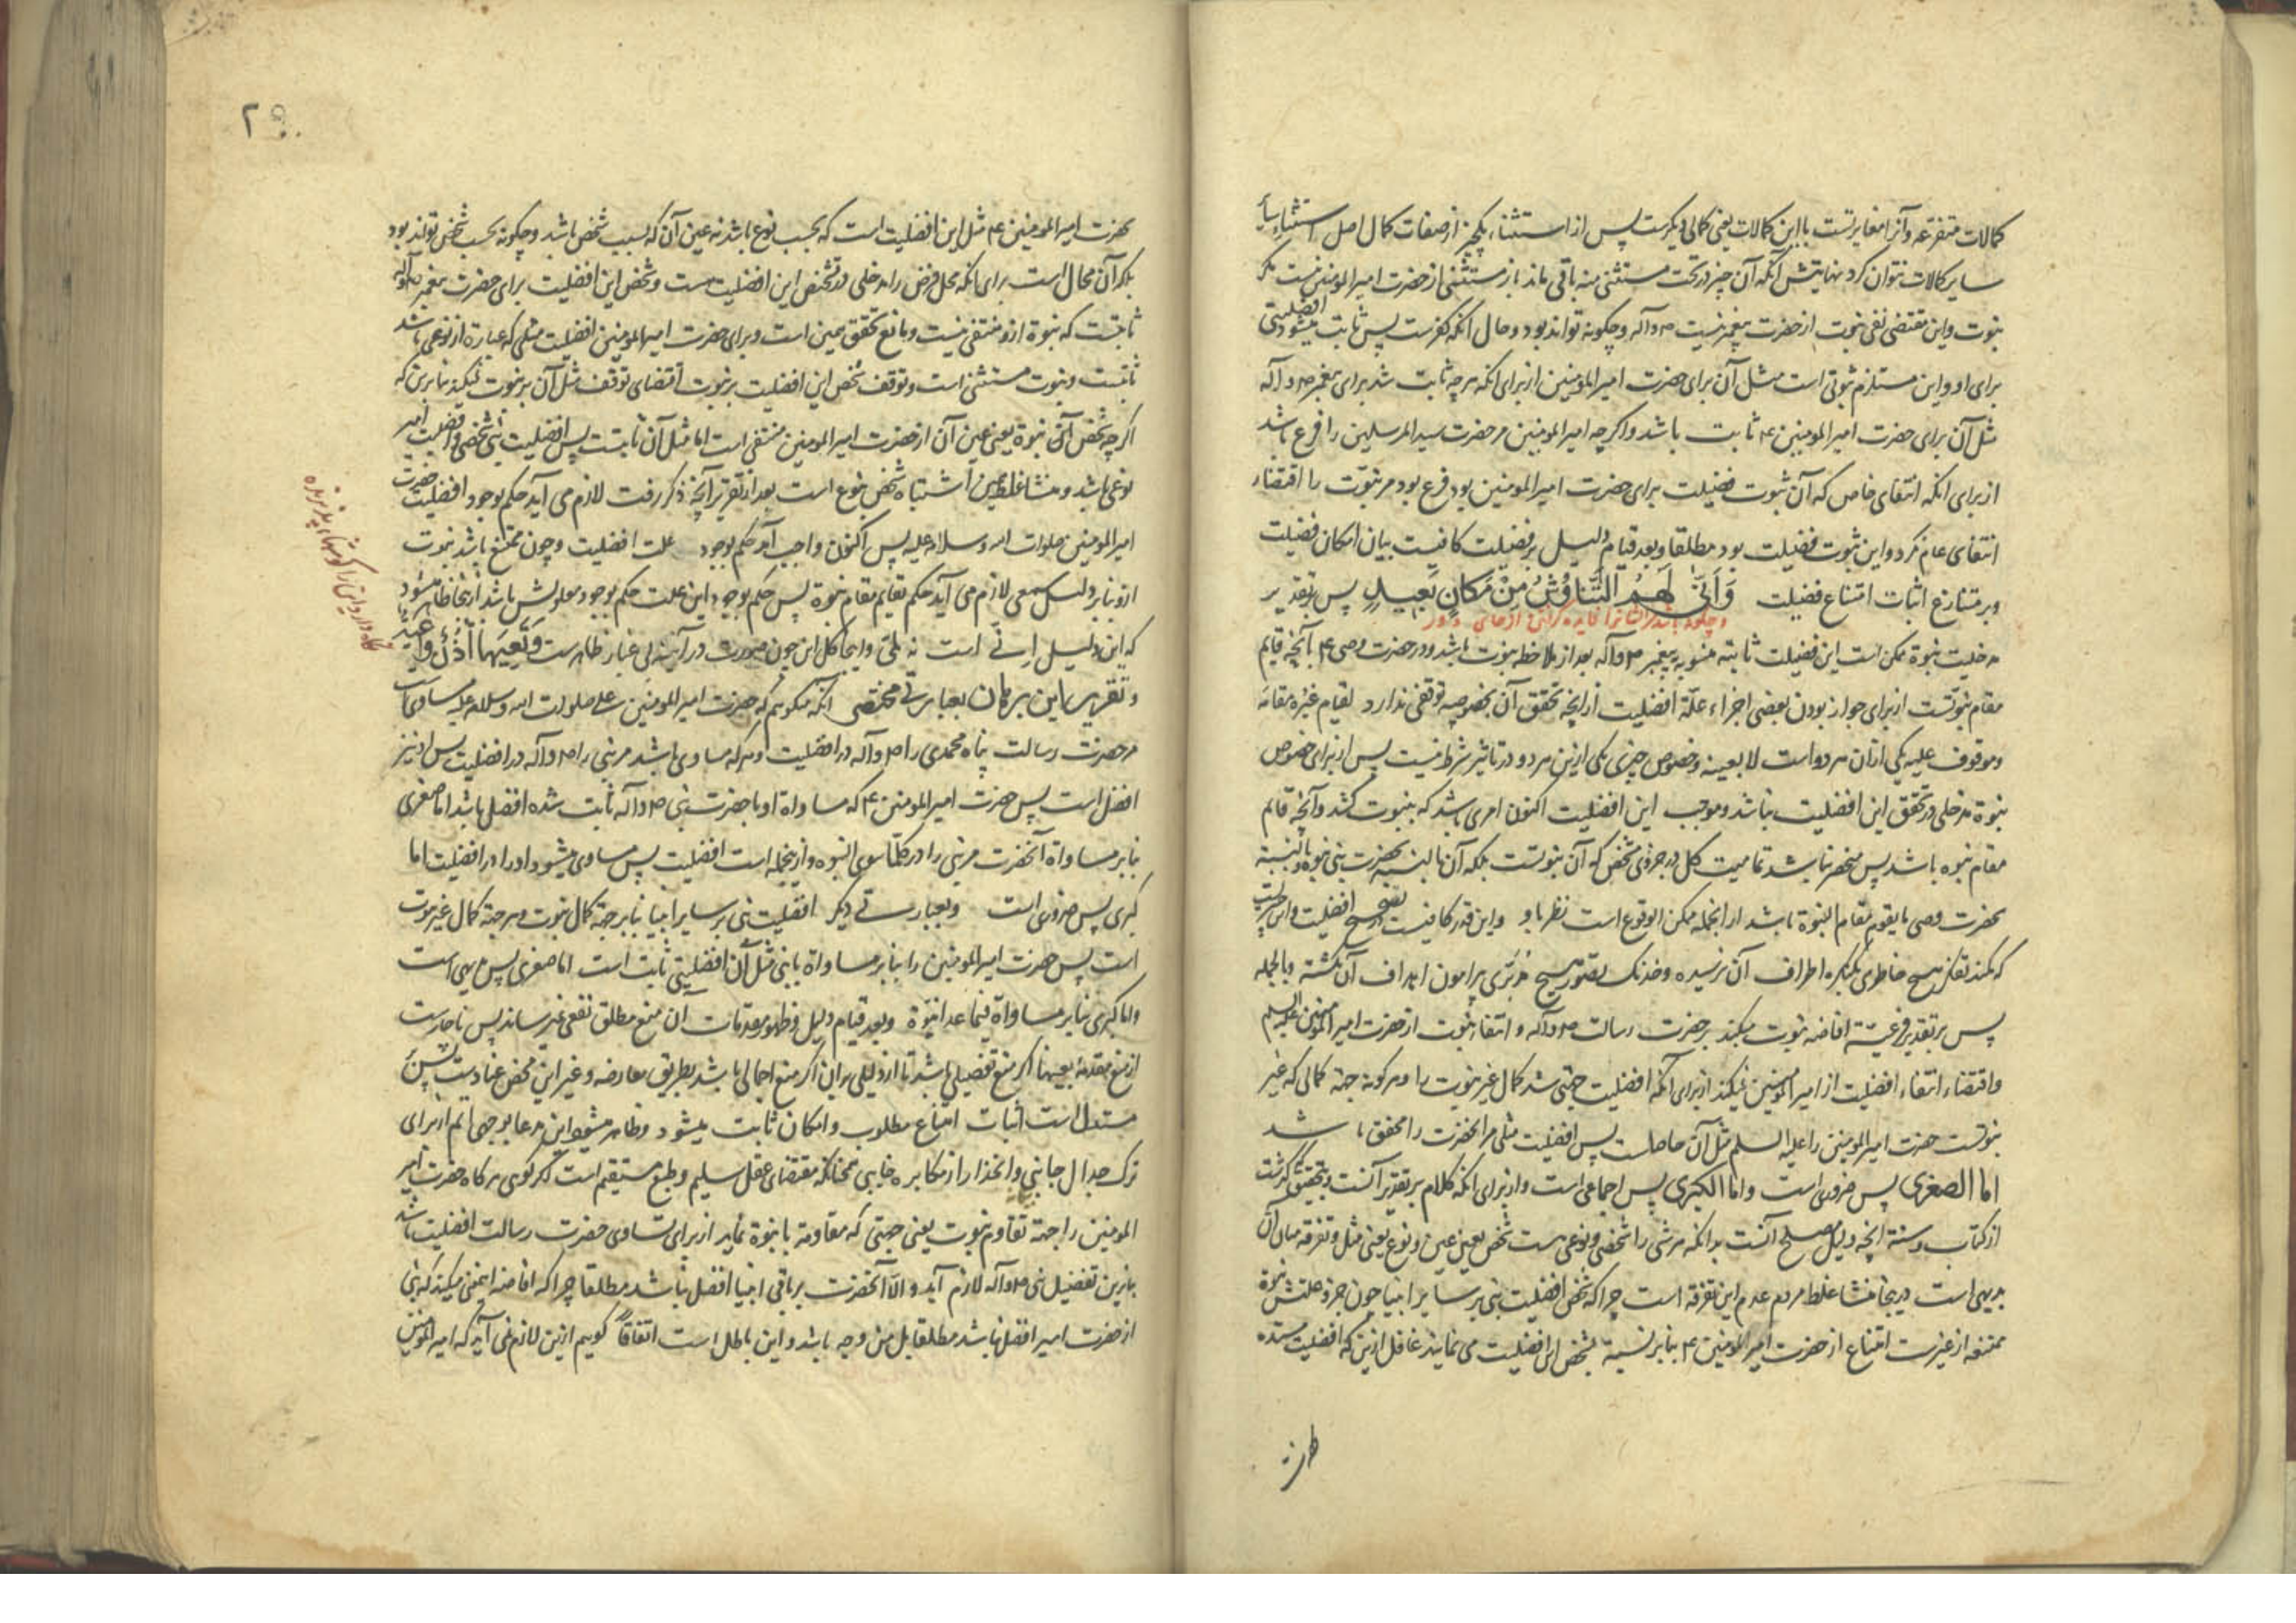 کمالات متفرعه و آنرا مغایرتست با این کمالات یعنی کمالی دیگرست پس از استثناء یکچیز از صفات کمال اصل استثناء
سایر کمالات نتوان کرد نهایتش آنکه آن چیز در تحت مستثنی منه باقی ماند باز مستثنی از حضرت امیر المومنین نیست مگر
نبوت و این مقتضی نفی نبوت از حضرت پیغمبر نیست ص و آله و چگونه تواند بود و حال آنکه کفرست پس ثابت میشود افضلیتی
برای او و این مستلزم ثبوتی است مثل آن برای حضرت امیر المومنین از برای انکه هرچه ثابت شد برای پیغمبر ص و آله
مثل آن برای حضرت امیر المومنین ع ثابت باشد و اگرچه امیر المومنین مر حضرت سید المرسلین را فرع باشد
از برای انکه انتفای خاص که آن ثبوت فضیلت برای حضرت امیر المومنین بود فرع بود مر نبوّت را اقتضاء
انتفای عام نکرد و این ثبوت فضیلت بود مطلقا و بعد قیام دلیل بر فضیلت کافیست بیان امکان فضیلت
و بر متنازع اثبات امتناع فضیلت وَاَنّٰی لَهُمُ التَّنَاوُشُ مِنْ مَکَانٍ بَعِیدٍ پس بتقدیر
و چگونه باشد مر ایشانرا فایده گرفتن از جای دور
مدخلیت نبوة ممکن است این فضیلت ثابته منسوبه به پیغمبر ص و آله بعد از ملاحظه نبوت باشد و در حضرت وصی ع آنچه قایم
مقام نبوتست از برای جواز بودن بعضی اجزاء علّة افضلیت از آنچه تحقق آن بخصوصیه توقفی ندارد لقیام غیره مقامه
و موقوف علیه یکی از آن هر دو است لا بعینه و خصوص چیزی یکی ازین هر دو در تاثیر شرط نیست پس از برای خصوص
نبوة مدخلی در تحقق این افضلیت نباشد و موجب این افضلیت اکنون امری باشد که نبوت کشد و آنچه قائم
مقام نبوه باشد پس منحصر نباشد تمامیت کل در جزوی شخص که آن نبوتست بلکه آن بالنسبه بحضرت نبی نبوه و بالنسبة
بحضرت وصی ما یقوم مقام النبوة باشد از انجمله ممکن الوقوع است نظر باو و این قدر کافیست افضلیت و این
که کمند تفکر هیچ خاطری بکنگره اطراف آن نرسیده و خدنگ تصور هیچ پیرامون اهداف آن نگشته و بالجمله
پس بر تقدیر فرعیّة افاضه نبوت میکند بر حضرت رسالت ص و آله و انتفاء نبوت از حضرت امیر المؤمنین علیه السلم
و اقتضاء انتفاء افضلیت از امیر المؤمنین نمیکند از برای آنکه افضلیت جهتی شد کمال غیر نبوت را و هر کونه جهة کمالی که غیر
نبوتست حضرت امیر المومنین را علیه السلم مثل آن حاصلست پس افضلیت مثلی مر آنحضرت را محقق باشد
اما الصغری پس ضروری است و اما الکبری پس اجماعی است و از برای انکه کلام بر تقدیر آنست و بتحقیق گذشت
از کتاب و سنة انچه دلیل مصلح آنست بدانکه هر شی را شخصی و نوعی هست شخص یعنی عین و نوع یعنی مثل و تفرقه میان آن
بدیهی است درینجا منشا غلط مردم عدم این تفرقه است چرا که شخص افضلیت نبی بر سایر انبیا چون جزو علتش نبوة
ممتنعه از غیرست امتناع از حضرت امیر المومنین ع بنابر نسبة شخص این افضلیت می نمایند غافل ازین که افضلیت
۲۹۰
بحضرت امیر المومنین ع مثل این افضلیت است که بحسب نوع باشد نه عین آن که بسبب شخص باشد و چگونه بحسب شخص تواند بود
بلکه آن محال است برای انکه محل فرض را مدخلی در تشخص این افضلیت هست و شخص این افضلیت برای حضرت پیغمبر ص و آله
ثابتست که نبوة ازو منتفی نیست و مانع تحقق همین است و برای حضرت امیر المومنین افضلیت مثلی که عبارة از نوعی باشد
ثابتست و نبوت مستثنی است و توقف شخص این افضلیت بر نبوت اقتضای توقف مثل آن بر نبوت نمیکند بنا برین که
اگرچه شخص آن نبوة یعنی عین آن از حضرت امیر المومنین منتفی است اما مثل آن ثابتست پس افضلیت نبی شخصی و افضلیت امیر
نوعی باشد و منشا غلط همین اشتباه شخص بنوع است بعد از تقریر آنچه ذکر رفت لازم می آید حکم بوجود افضلیت حضرت
امیر المومنین صلوات الله و سلامه علیه پس اکنون واجب آمد حکم بوجود علت افضلیت و چون ممتنع باشد نبوت
ازو بنابر دلیل سمعی لازم می آید حکم بقایم مقام نبوة پس حکم بوجود این علت حکم بوجود معلولش باشد از اینجا ظاهر میشود
که این دلیل اِنی است نه لمّی و اینجا کل این چون صورت در آینه بی غبار ظاهرست وَتَعِیَهَا اُذُنٌ وَاعِیَةٌ
نگاه دارد این را گوشهاء پذیرنده
و تقریر این برهان بعبارتی مختصر آنکه میگوئیم که حضرت امیر المومنین علی صلوات الله و سلامه علیه مساوی است
مر حضرت رسالت پناه محمدی را ص و آله در افضلیت و هر که مساوی باشد مر نبی را ص و آله در افضلیت پس او نیز
افضل است پس حضرت امیر المومنین ع که مساواة او با حضرت نبی ص و آله ثابت شده افضل باشد اما صغری
بنابر مساواة آنحضرت مر نبی را در کلّما سوی النبوه و از ینجمله است افضلیت پس مساوی میشود او را در افضلیت اما
کبری پس ضروری است و بعبارتی دیگر افضلیت نبی بر سایر انبیا بنابر جهة کمال نبوت و هر جهة کمال غیر نبوت
است پس حضرت امیر المومنین را بنابر مساواة با نبی مثل آن افضلیتی ثابت است اما صغری پس بدیهی است
و اما کبری بنابر مساواة فیما عدا النبوّة و بعد قیام دلیل و ظهور مقدمات آن منع مطلق نفعی نمیرساند پس ناچارست
از منع مقدمهٔ بعینها اگر منع تفصیلی باشد تا از دلیلی بر آن اگر منع اجمالی باشد بطریق معارضه و غیر این محض عنادست پس
مستدل است اثبات امتناع مطلوب و امکان ثابت میشود و ظاهر میشود این مدعا بوجهی اتم از برای
ترک جدال جانبی و اتخذار از مکابره خایبی همچنانکه مقتضای عقل سلیم و طبع مستقیم است اگر گوئی هرگاه حضرت امیر
المومنین را جهة تقاوم نبوت یعنی جهتی که مقاومة با نبوة نماید از برای تساوی حضرت رسالت افضلیت باشد
بنا برین تفضیل نبی ص و آله لازم آید و الا آنحضرت بر باقی انبیا افضل نباشد مطلقا چرا که افاضه اینمعنی میکند که نبی
از حضرت امیر افضل نباشد مطلقا بل من وجه باشد و این باطل است اتفاقاً گویم ازین لازم نمی آید که امیر المومنین